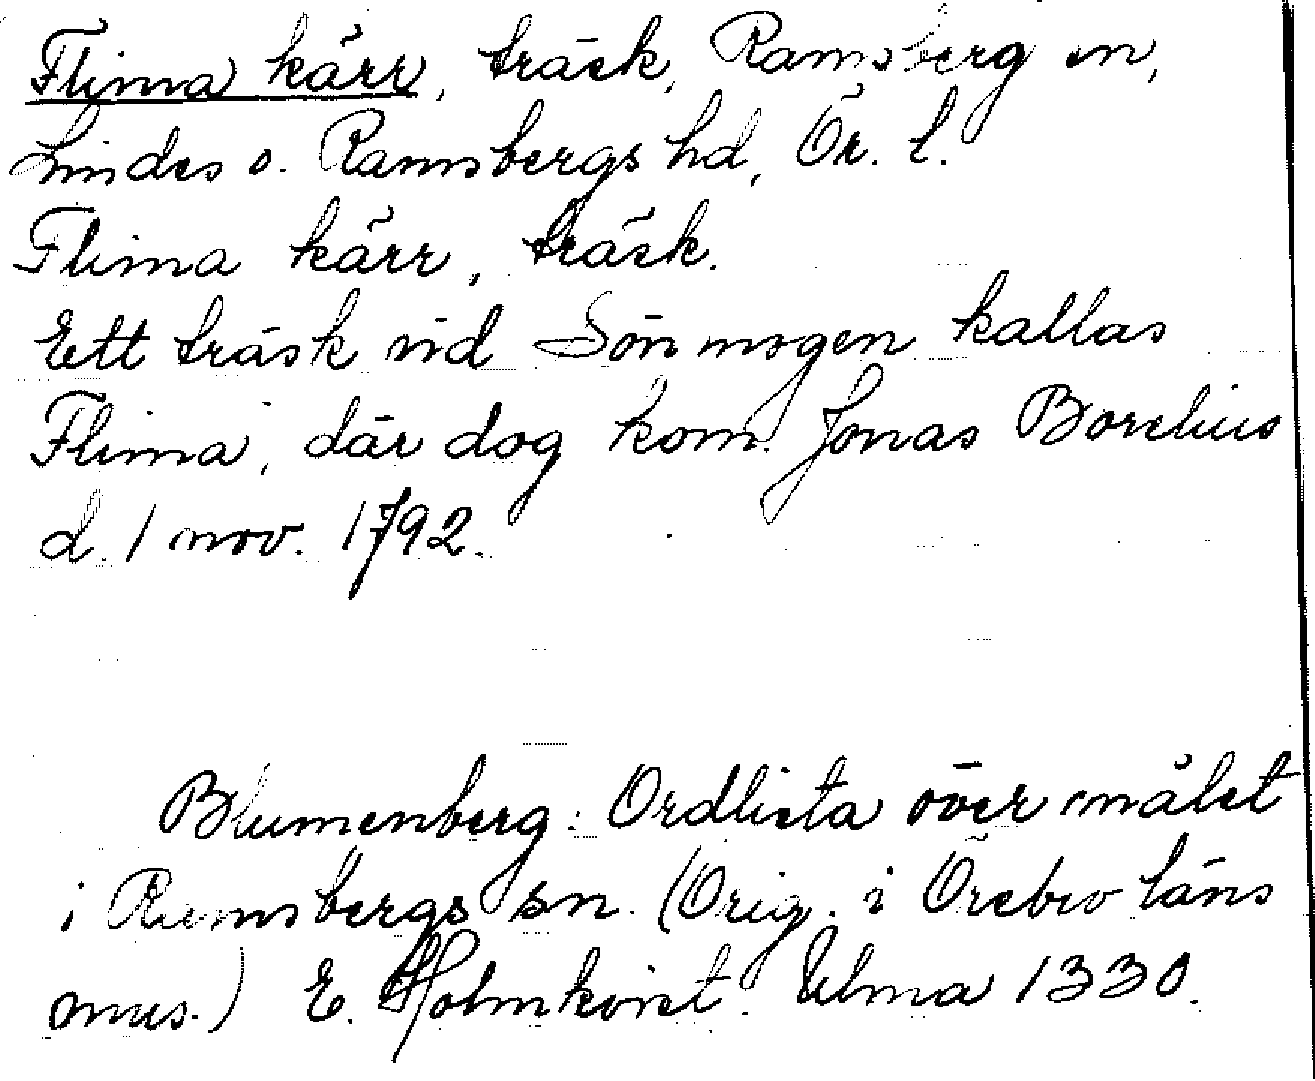 Flima kärr, träsk, Ramsberg sn,
Lindes o. Ramsbergs hd, Ör. l.
Flima kärr, träsk.
Ett träsk vid Sön mogen kallas
Flima, där dog kom. Jonas Borelius
d. 1 nov. 1792.
Blumenberg: Ordlista över målet
i Ramsbergs sn. (Orig. i Örebro läns
mus.) E. Holmkvist. Ulma 1330.